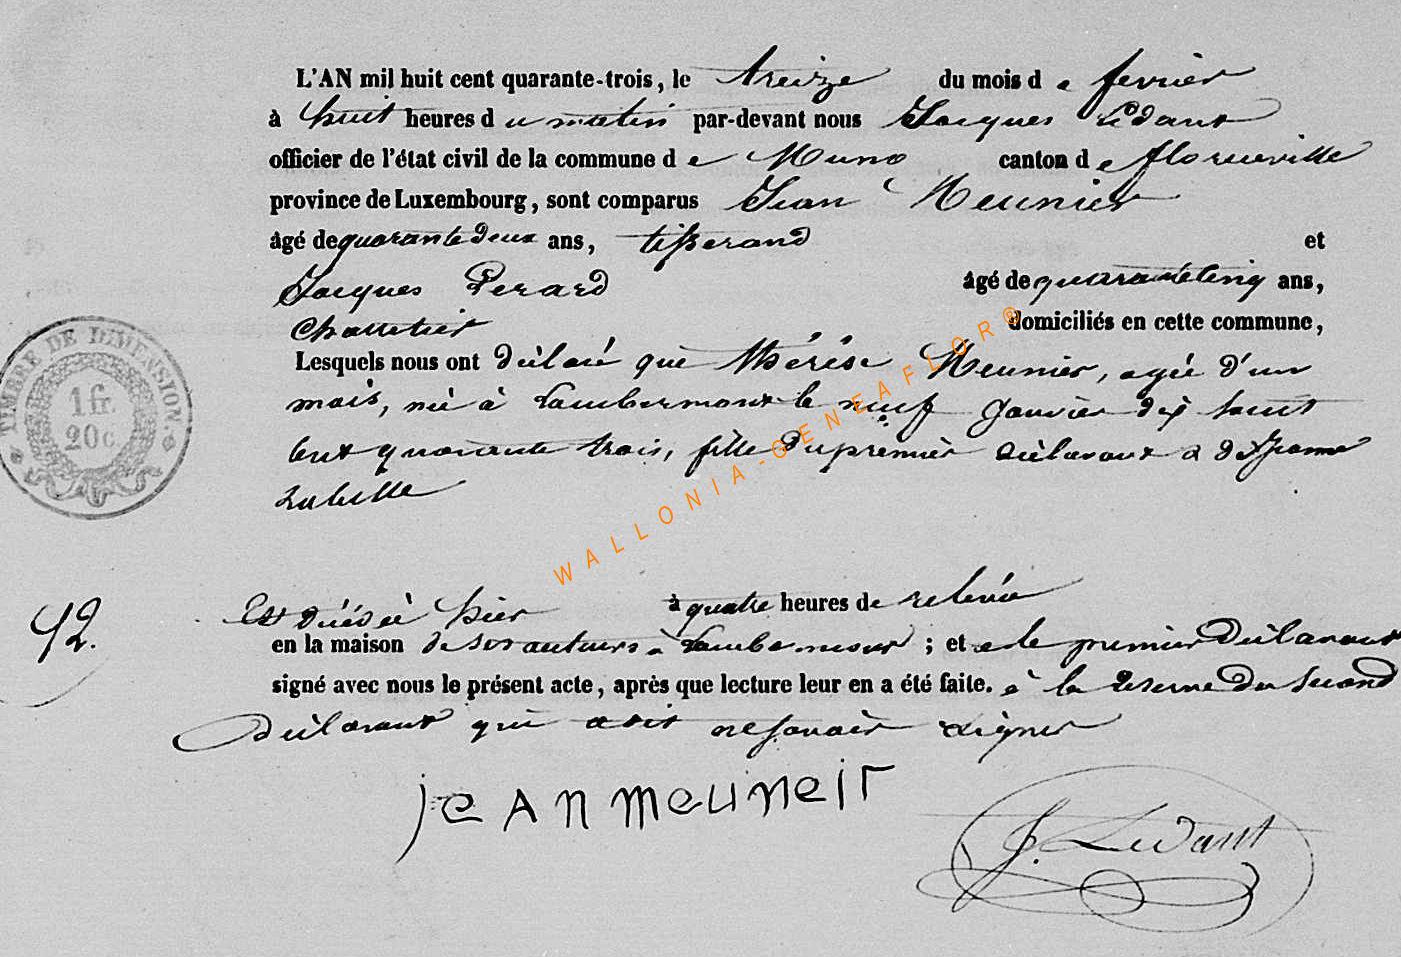 L'AN mil huit cent quarante-trois, le treize du mois de fevrier
à huit heures du matin par-devant nous Jacques Lédant
officier de l'état civil de la commune de Muno canton de florenville
province de Luxembourg, sont comparus Jean Meunier
âgé de quarante deux ans, tisserand et
Jacques Perard âgé de quarante cinq ans,
Charretier domiciliés en cette commune,
Lesquels nous ont déclaré que thérése Meunier, agée d'un
mois, née à Lambermont le neuf Janvier dix huit
cent quarante trois, fille du premier déclarant &
Est décédée hier à quatre heures de relevée
en la maison de ses auteurs à Lambermont ; et le premier Déclarant
signé avec nous le présent acte, après que lecture leur en a été faite. à la reserve du second
Déclarant qui a dit ne savoir signer
jeAn meuneir
J. Lédant
TIMBRE DE DIMENSION.
1 fr.
20 c.
WALLONIA-GENEAFLOR®